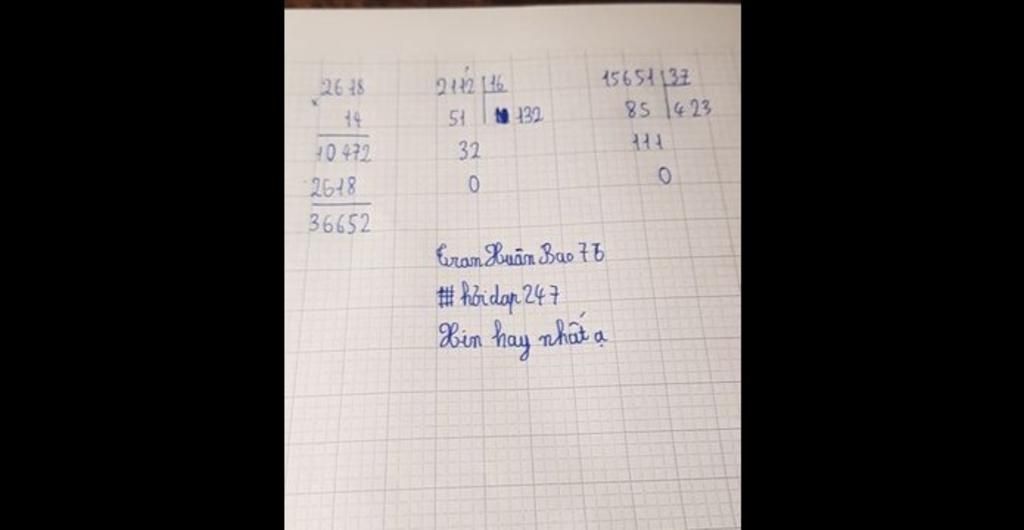 2618
×
14
10472
2618
36652
2112 16
51 132
32
0
15651 37
85 423
111
0
Tran Xuân Bao 76
# hỏi dap 247
Xin hay nhất ạ